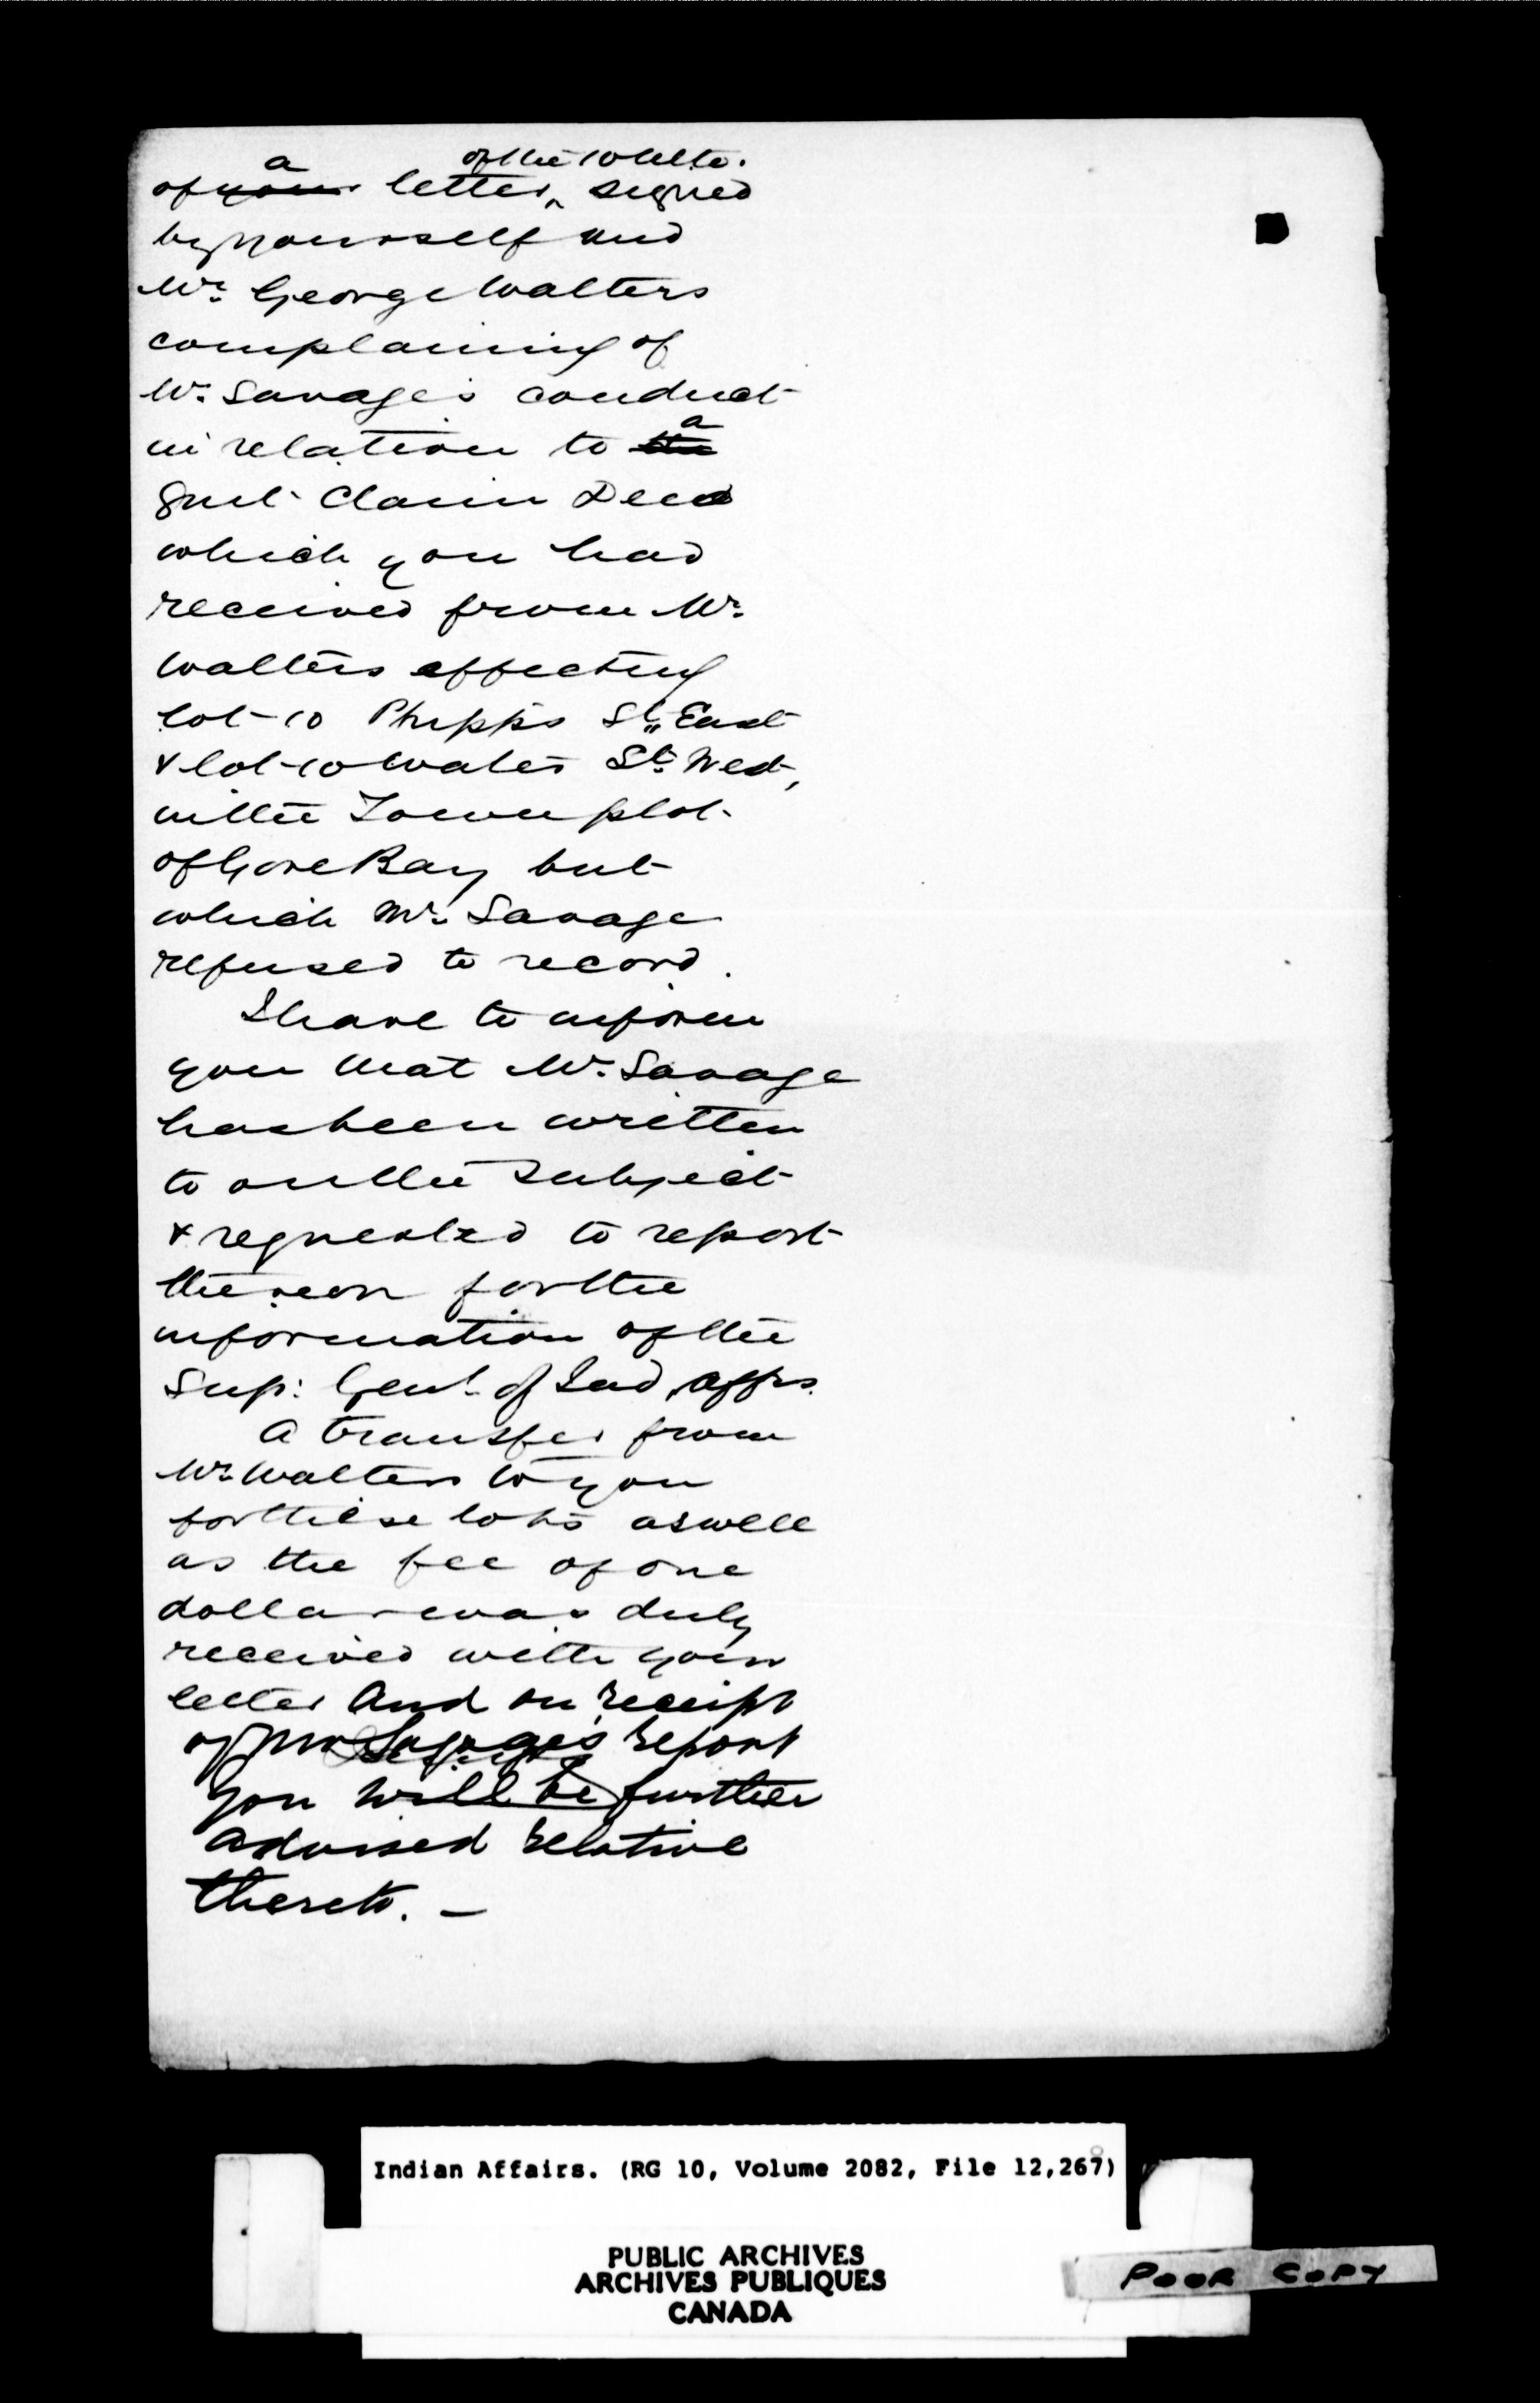 of ~~your~~ a letter, of the 10 ulto. signed
by yourself and
Mr. George Walters
complaining of
Mr. Savage's conduct
in relation to ~~the~~ a
Quit Claim Deed
which you had
received from Mr.
Walters effecting
lot 10 Phipps St. East
& lot 10 Water St. West,
in the Town plot
of Gore Bay but
which Mr. Savage
refused to record.
I have to inform
you that Mr. Savage
has been written
to on the subject
& requested to report
thereon for the
information of the
Sup: Genl. of Ind. Affrs.
A transfer from
Mr. Walters to you
for these lots as well
as the fee of one
dollar was duly
received with your
letter and on receipt
of Mr Savage's report
you will be further
advised relative
thereto. —
Indian Affairs. (RG 10, Volume 2082, File 12,267)
PUBLIC ARCHIVES
ARCHIVES PUBLIQUES
CANADA
POOR COPY